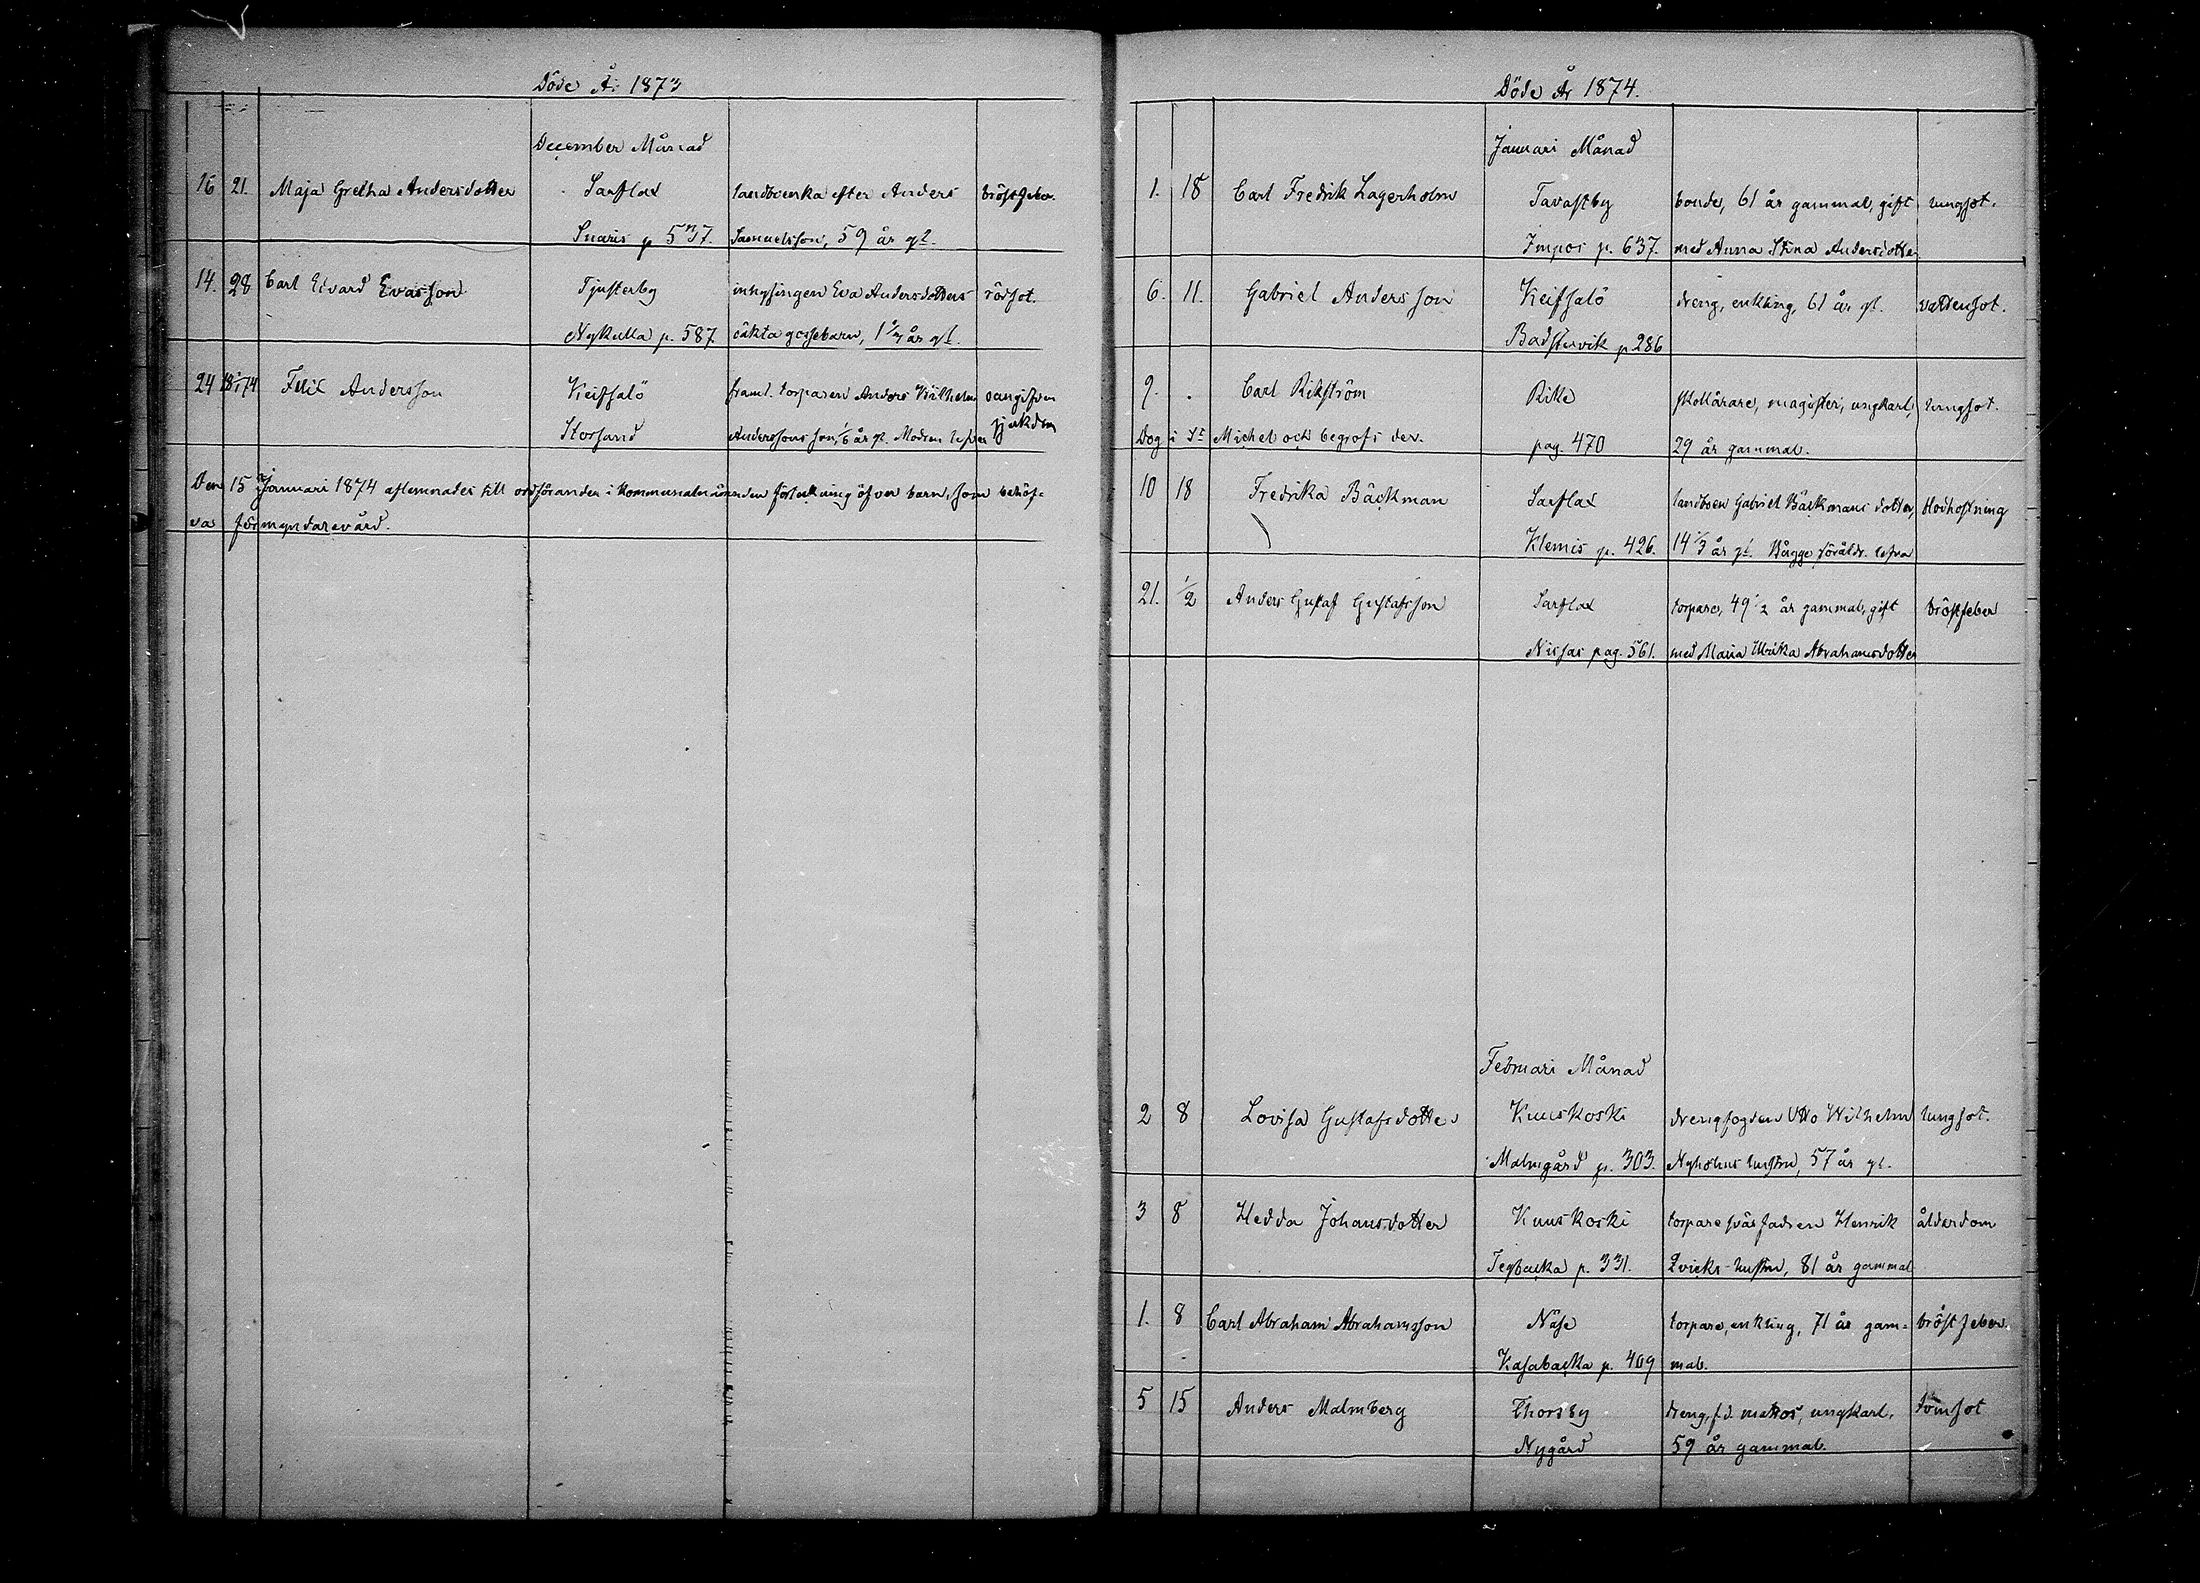 Döde År 1873
December Månad
16 21. Maja Gretha Andersdotter Sarflax landboenka efter Anders bröstfeber.
Snaris p 537. Samuelsson, 59 år gl.
14. 28 Carl Edvard Evasson Tjusterby inhysingen Eva Andersdotters rödsot.
Nykulla p. 587. oäkta gossebarn, 1 2/3 år gl.
24 18/1 74 Felix Andersson Keitsalö framl. torparen Anders Wilhelm oangifven
Storsand Anderssons son, 1/6 år gl. Modren lefver sjukdom
Den 15 Januari 1874 aflemnades till ordföranden i kommunalnämnden förteckning öfver barn, som behöf-
va förmyndarevård.
Döde År 1874.
Januari Månad
1. 18 Carl Fredrik Lagerholm Tavastby bonde, 61 år gammal, gift lungsot.
Impos p. 637. med Anna Stina Andersdotter
6. 11. Gabriel Andersson Keitsalö dreng, enkling, 61 år gl. vattensot.
Badstuvik p 286
9. . Carl Rikström Rike skollärare, magister, ungkarl, lungsot.
Dog i St Michel och begrofs der. pag. 470 29 år gammal.
10 18 Fredrika Bäckman Sarflax landboen Gabriel Bäckmans dotter, blodhostning
Klemis p. 426. 14 1/3 år gl. Bägge föräldr. lefva
21. 1/2 Anders Gustaf Gustafsson Sarflax torpare, 49 1/2 år gammal, gift bröstfeber
Nissas pag. 561. med Maria Ulrika Abrahamsdotter
Februari Månad
2 8 Lovisa Gustafsdotter Kuuskoski drengfogden Otto Wilhelm lungsot.
Malmgård p. 303. Nyholms hustru, 57 år gl.
3 8 Hedda Johansdotter Kuuskoski torpare svärfadren Henrik ålderdom
Tegbacka p. 331. Qvicks hustru, 81 år gammal
1. 8 Carl Abraham Abrahamsson Näse torpare, enkling, 71 år gam- bröstfeber.
Kasabacka p. 409 mal.
5 15 Anders Malmberg Thorsby dreng, f.d. matros, ungkarl,
Nygård 59 år gammal.